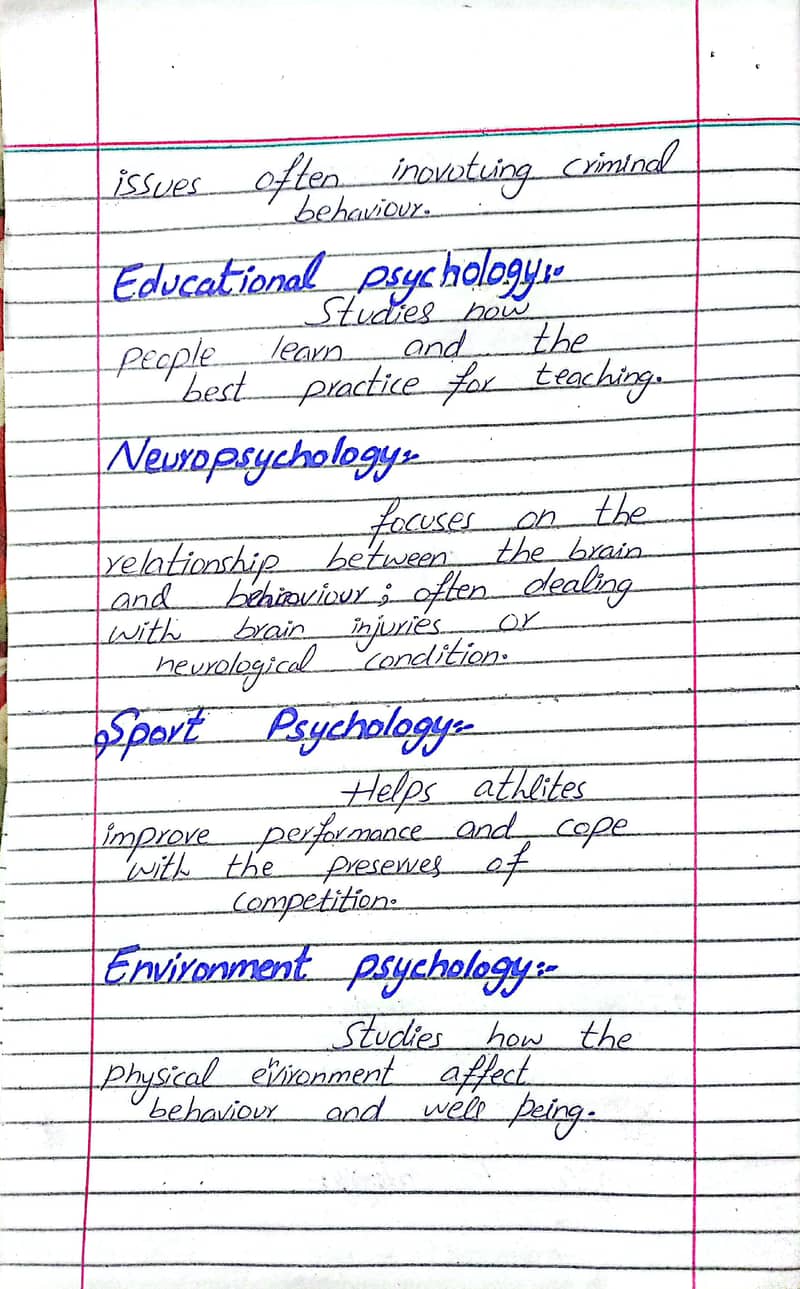 issues often inovotving criminal
behaviour.
Educational psychology:-
Studies how
people learn and the
best practice for teaching.
Neuropsychology:-
focuses on the
relationship between the brain
and behinoviour; often dealing
with brain injuries or
neurological condition.
Sport Psychology:-
Helps athlites
improve performance and cope
with the preserves of
competition.
Environment psychology:-
Studies how the
physical environment affect
behaviour and well being.